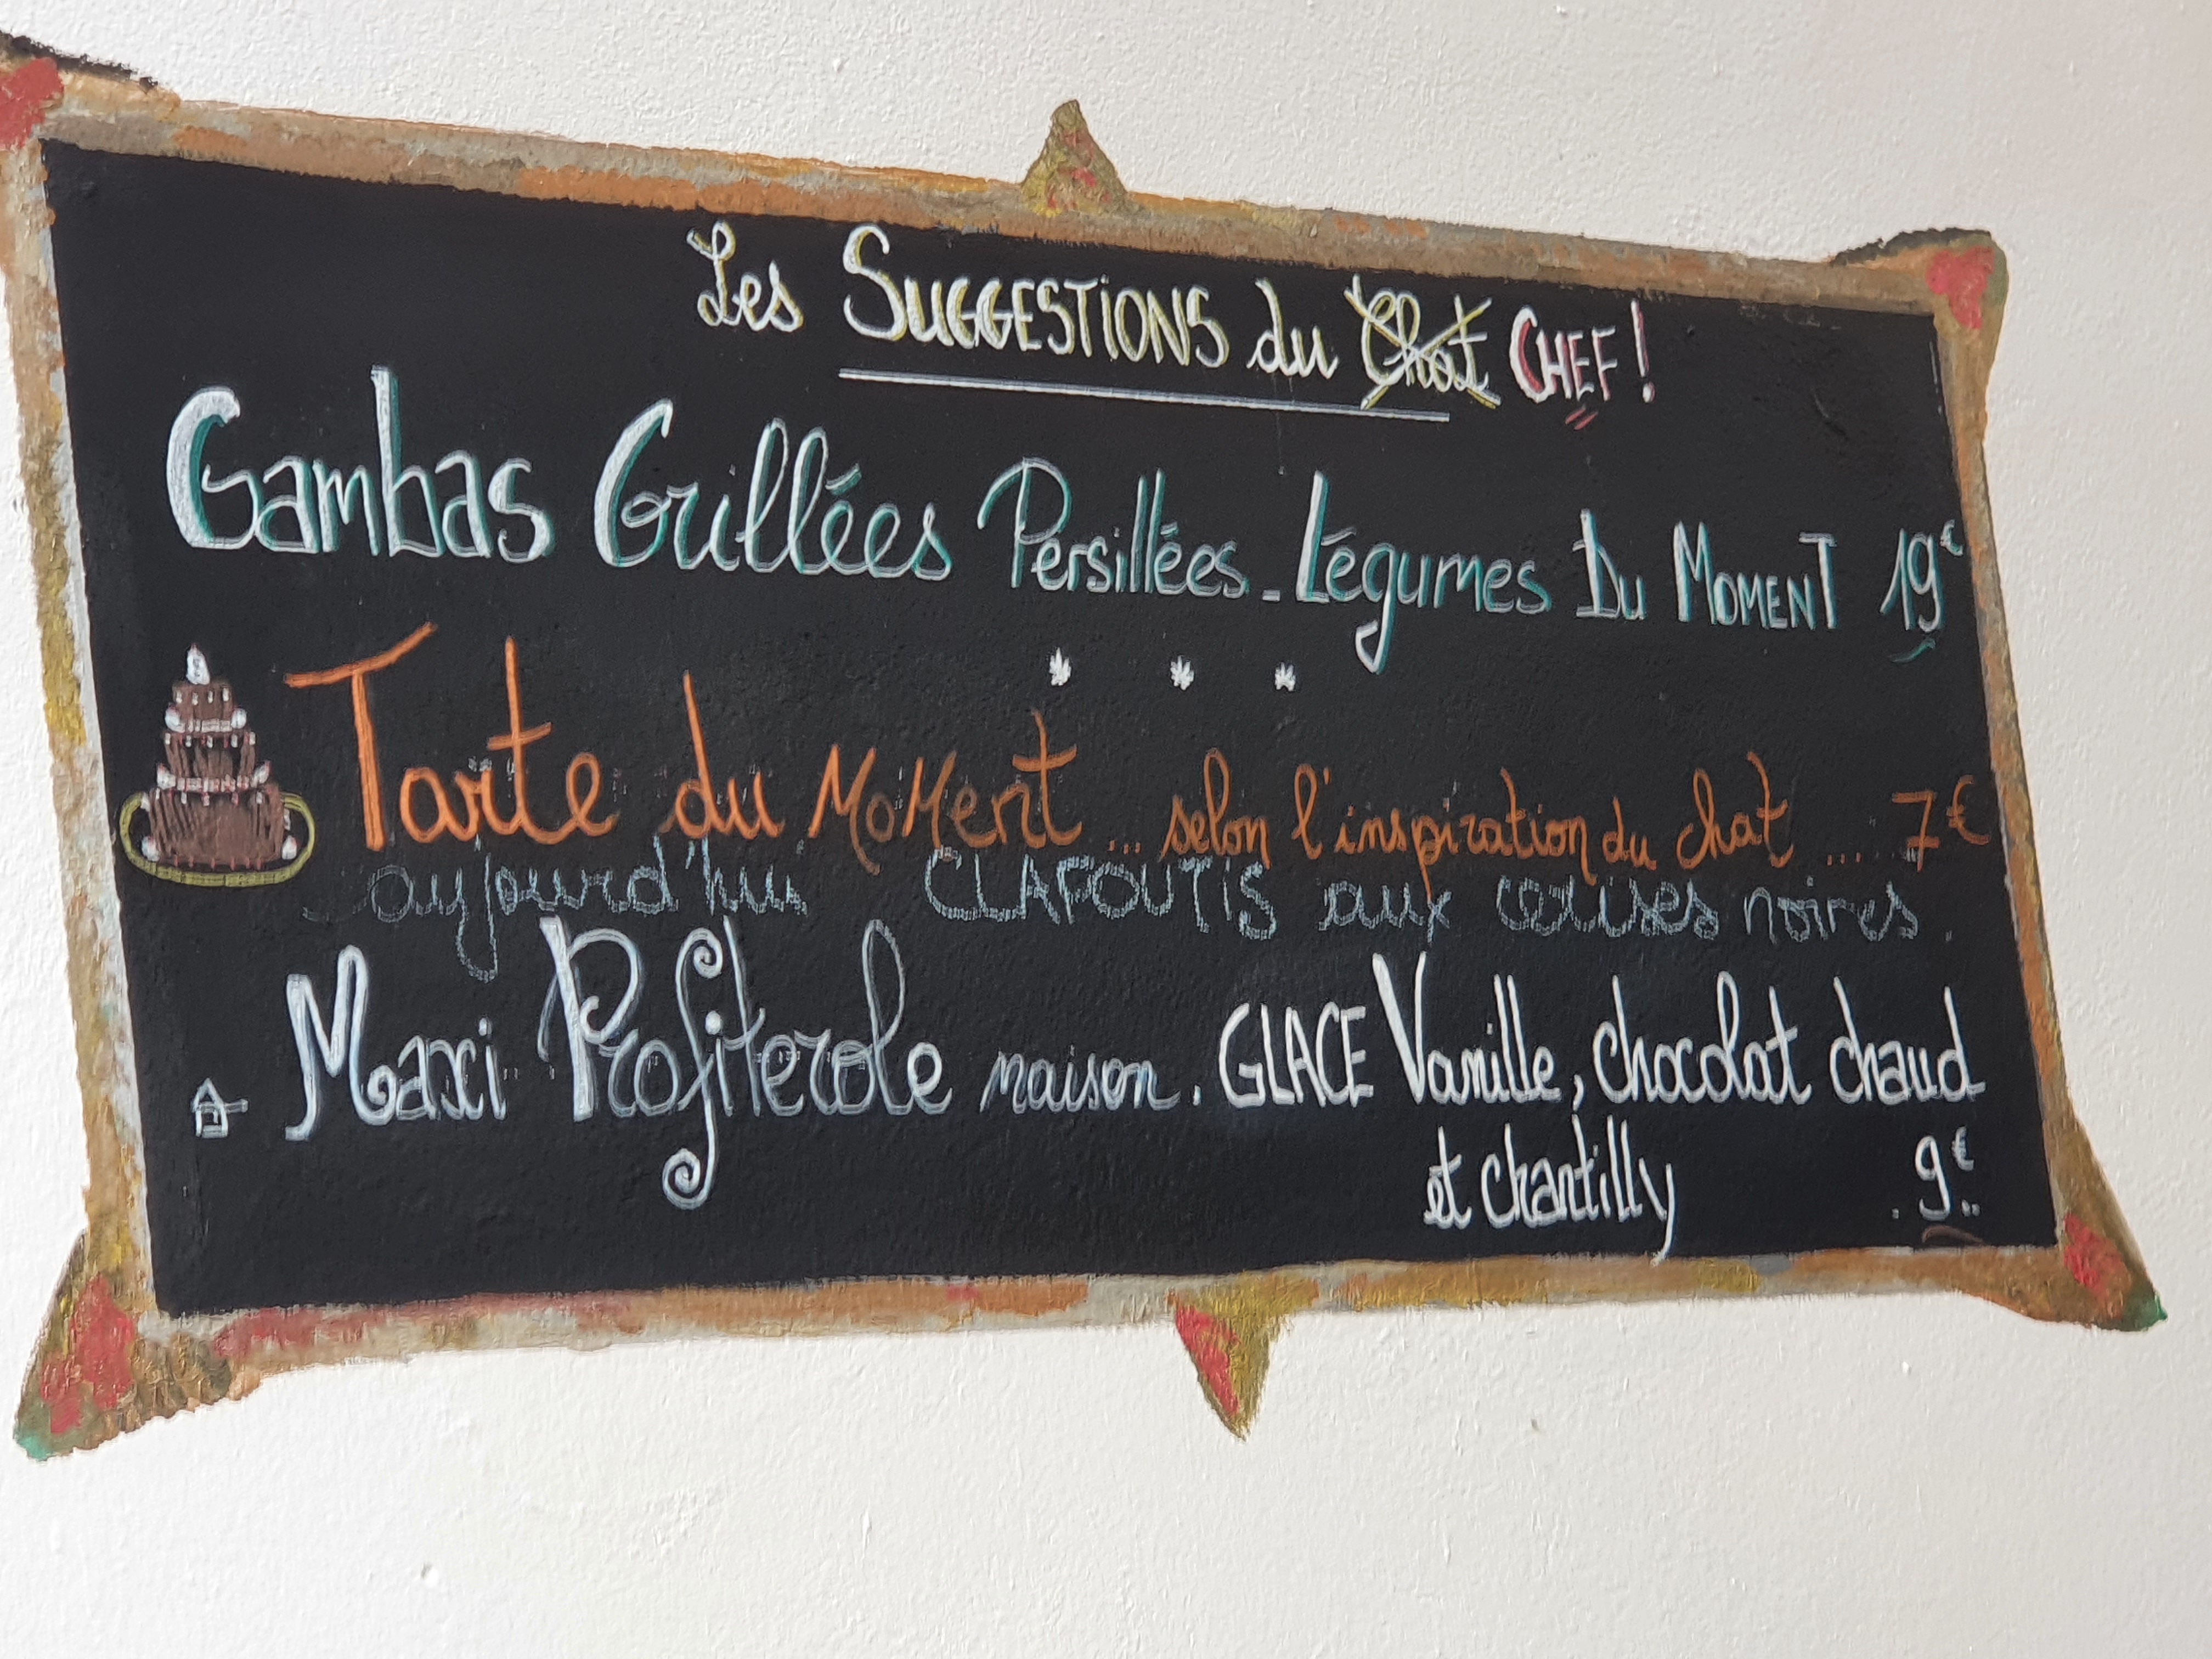 Les SUGGESTIONS du Chat CHEF !
Gambas Grillées Persillées - Légumes Du MOMENT 19€
Tarte du MoMent ... selon l'inspiration du chat .... 7€
aujourd'hui CLAFOUTIS aux cerises noires.
Maxi Profiterole maison. GLACE Vanille, chocolat chaud
et chantilly 9€